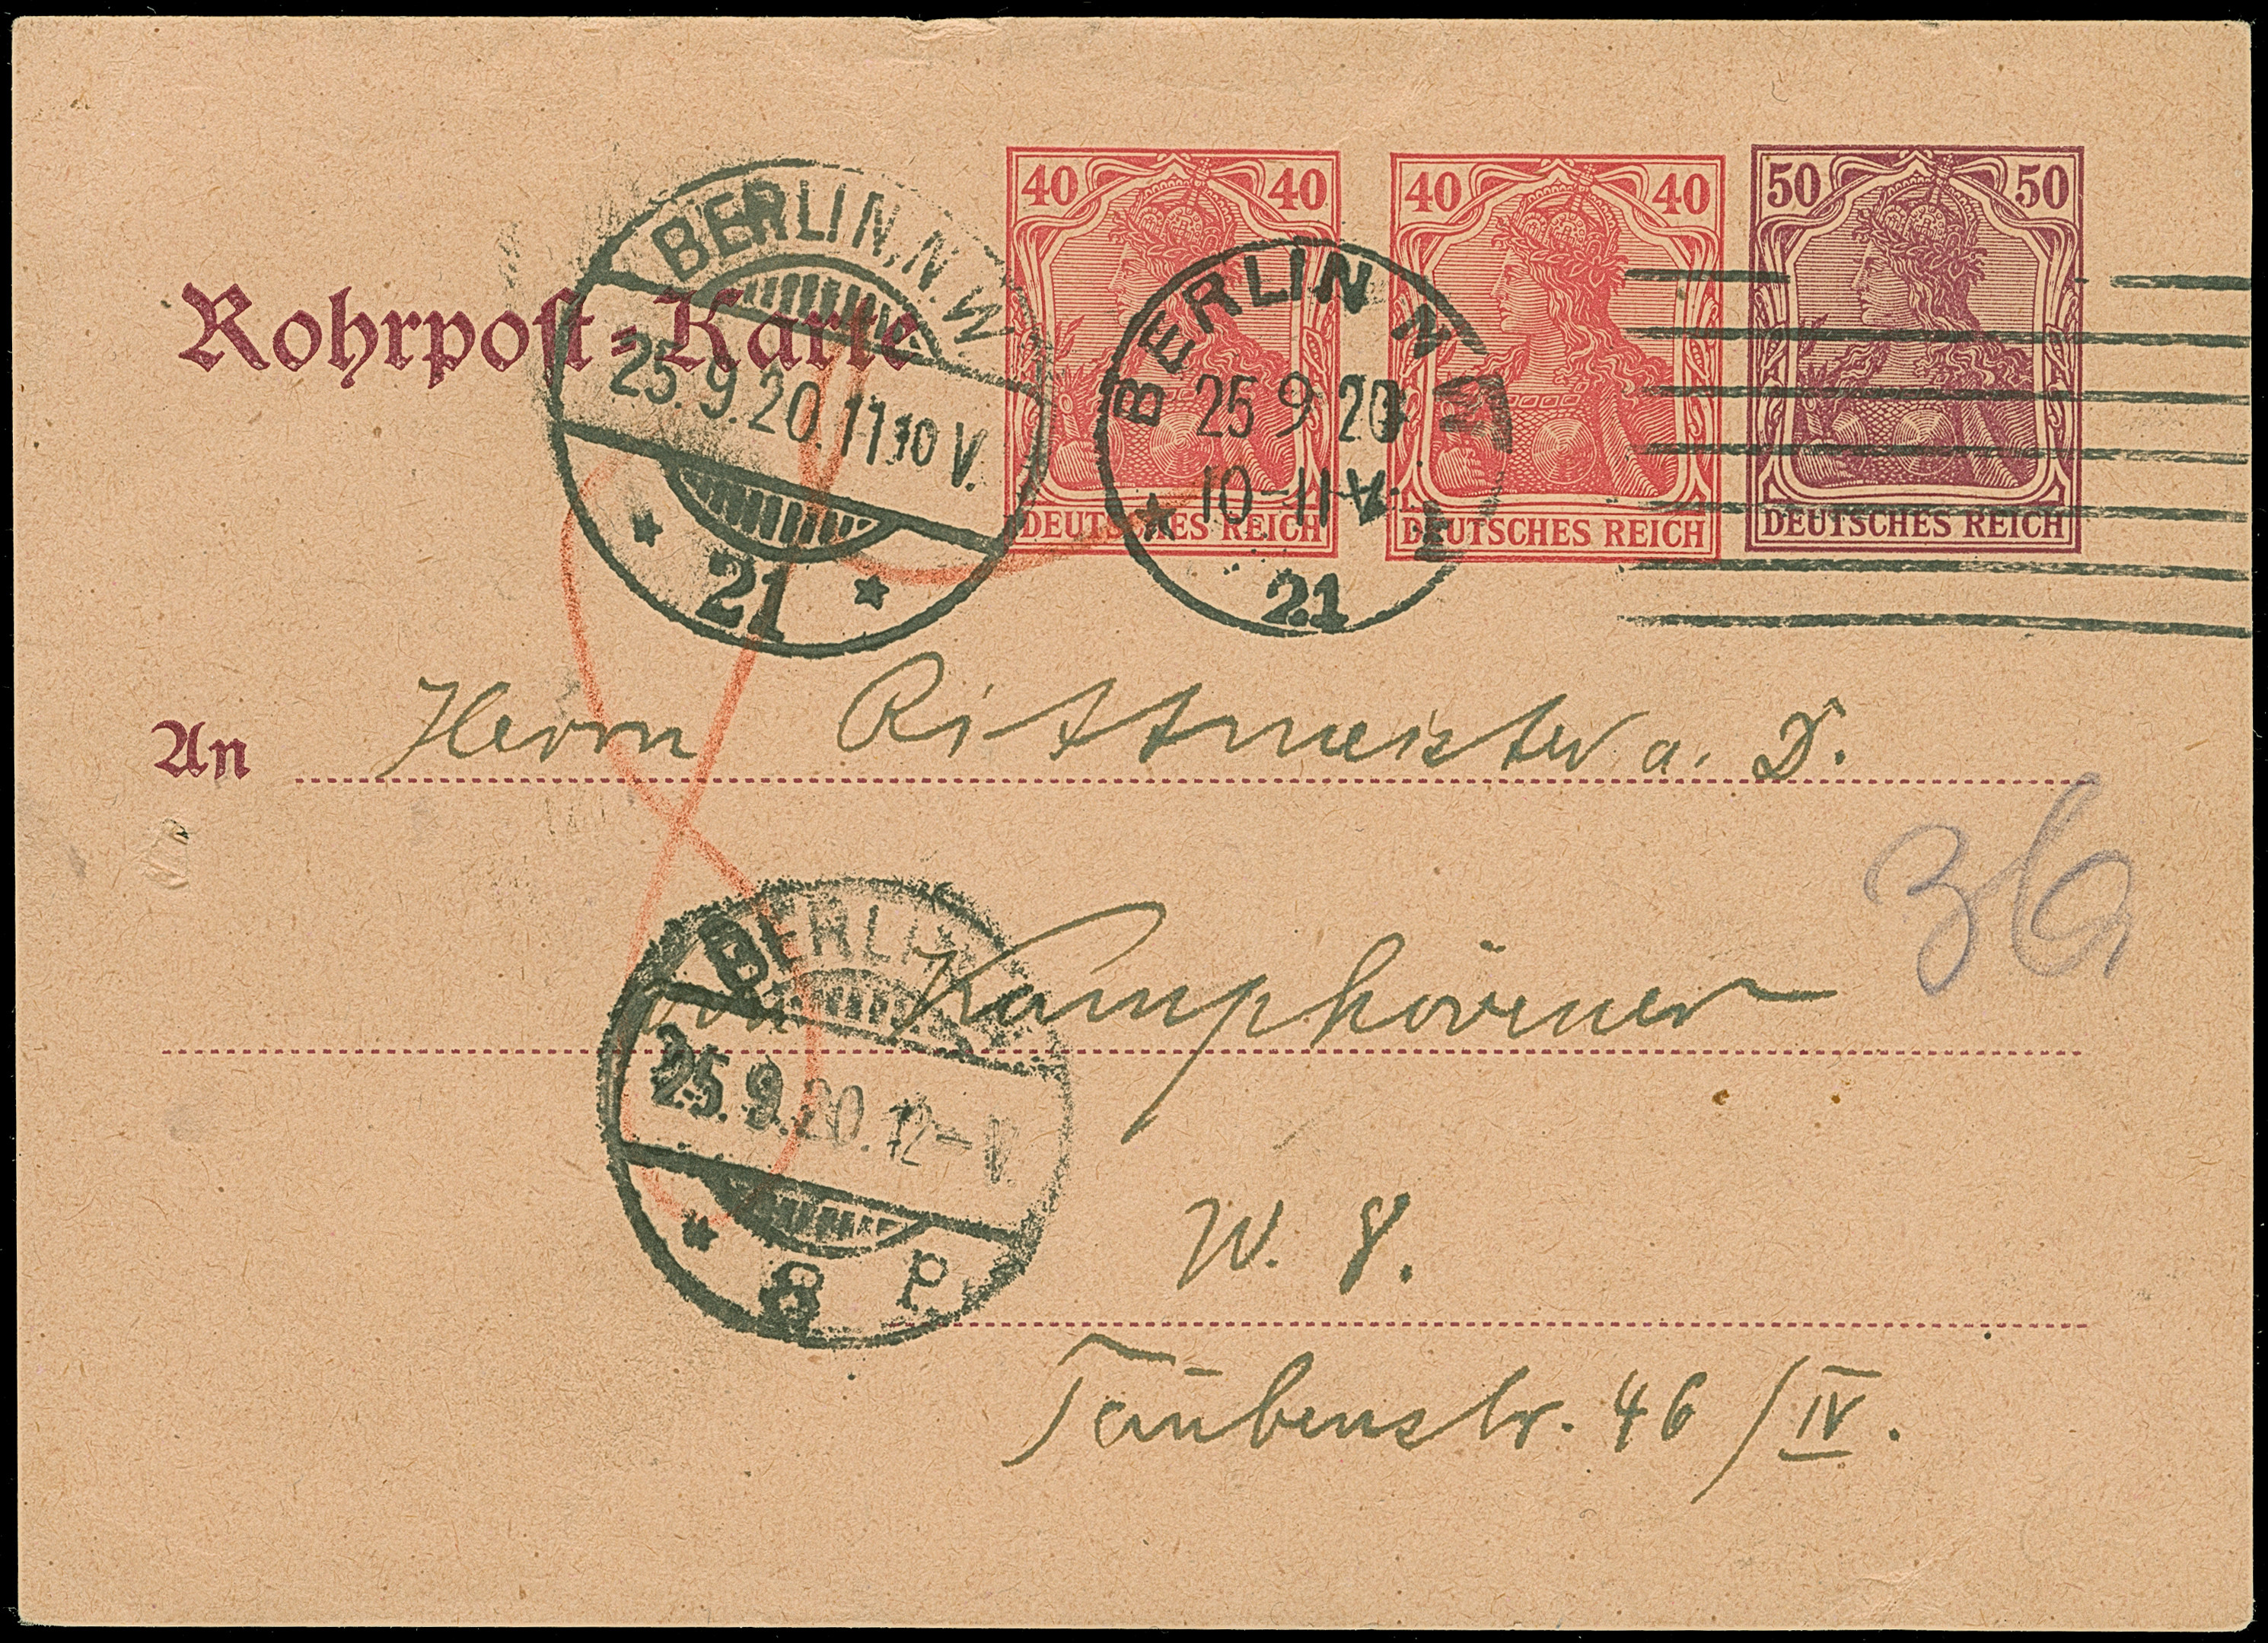 40 40 40 40 50 50
DEUTSCHES REICH DEUTSCHES REICH DEUTSCHES REICH
Rohrpost-Karte
BERLIN.N.W.
25.9.20.11 30 V.
* 21 *
BERLIN N W
25 9 20
* 10-11 V *
21
An Herrn Rittmeister a. D.
36
von Kamphövener
BERLIN
25.9.20.12-V.
* 8 P.
W. 8.
Taubenstr. 46/IV.